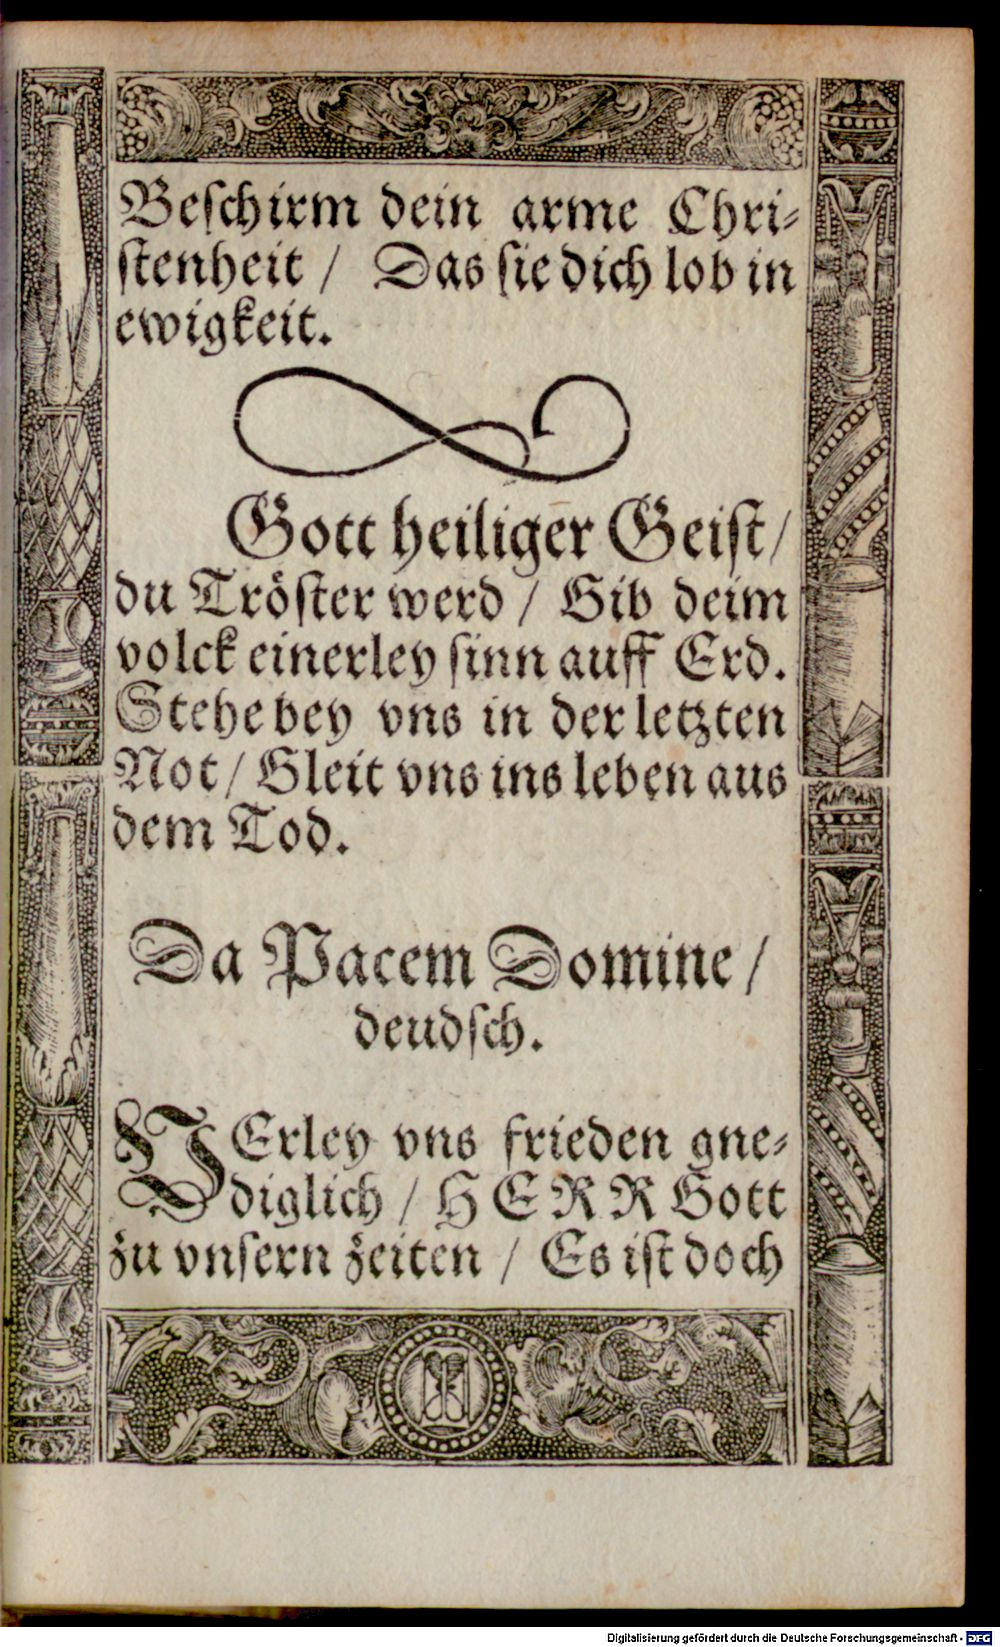 Beſchirm dein arme Chri⸗
ſtenheit / Das ſie dich lob in
ewigkeit.
Gott heiliger Geiſt /
du Tröſter werd / Gib deim
volck einerley ſinn auff Erd.
Stehe bey vns in der letzten
Not / Gleit vns ins leben aus
dem Tod.
Da Pacem Domine /
deudſch.
VErley vns frieden gne⸗
diglich / HERR Gott
zu vnſern zeiten / Es iſt doch
Digitalisierung gefördert durch die Deutsche Forschungsgemeinschaft - DFG